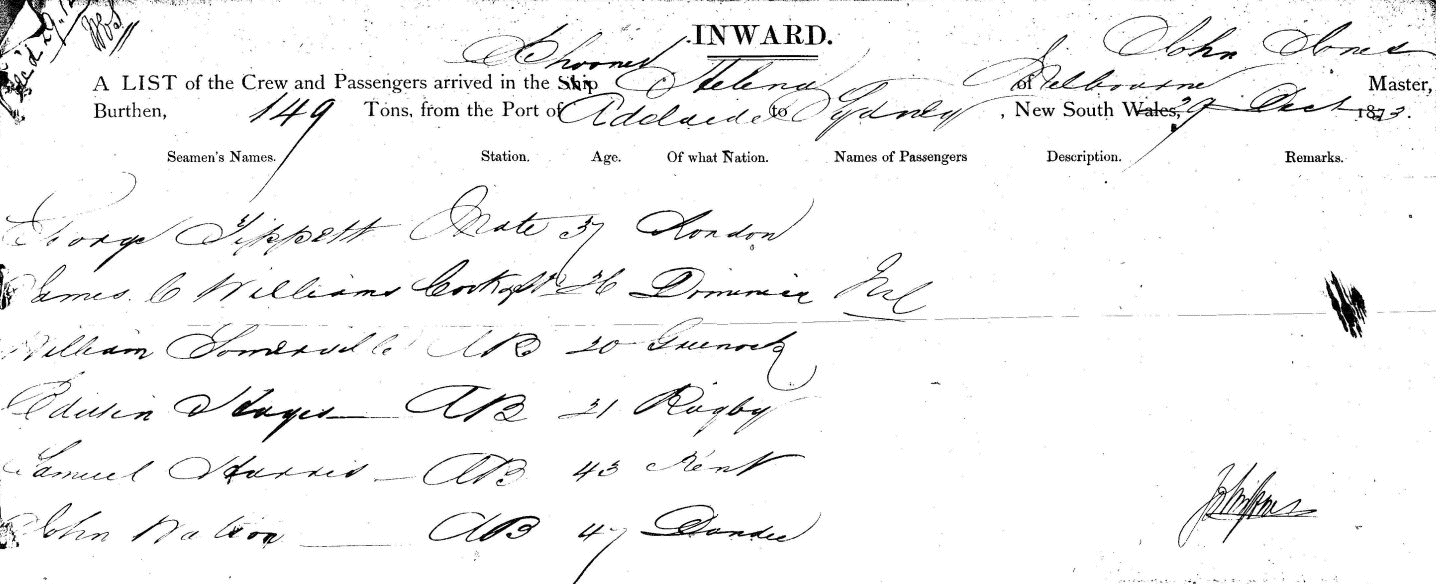 INWARD.
Schooner John Jones
A LIST of the Crew and Passengers arrived in the Ship Helena of Melbourne Master,
Burthen, 149 Tons, from the Port of Adelaide to Sydney, New South Wales, 29 Dec 1873.
Seamen's Names. Station. Age. Of what Nation. Names of Passengers Description. Remarks.
George Tippett Mate 37 London
James C Williams 26 Dominica Nil
William Somerville AB 20 Greenock
Edwin Hayes AB 21 Rugby
Samuel Harris AB 43 Kent
John Watson AB 47 Dundee